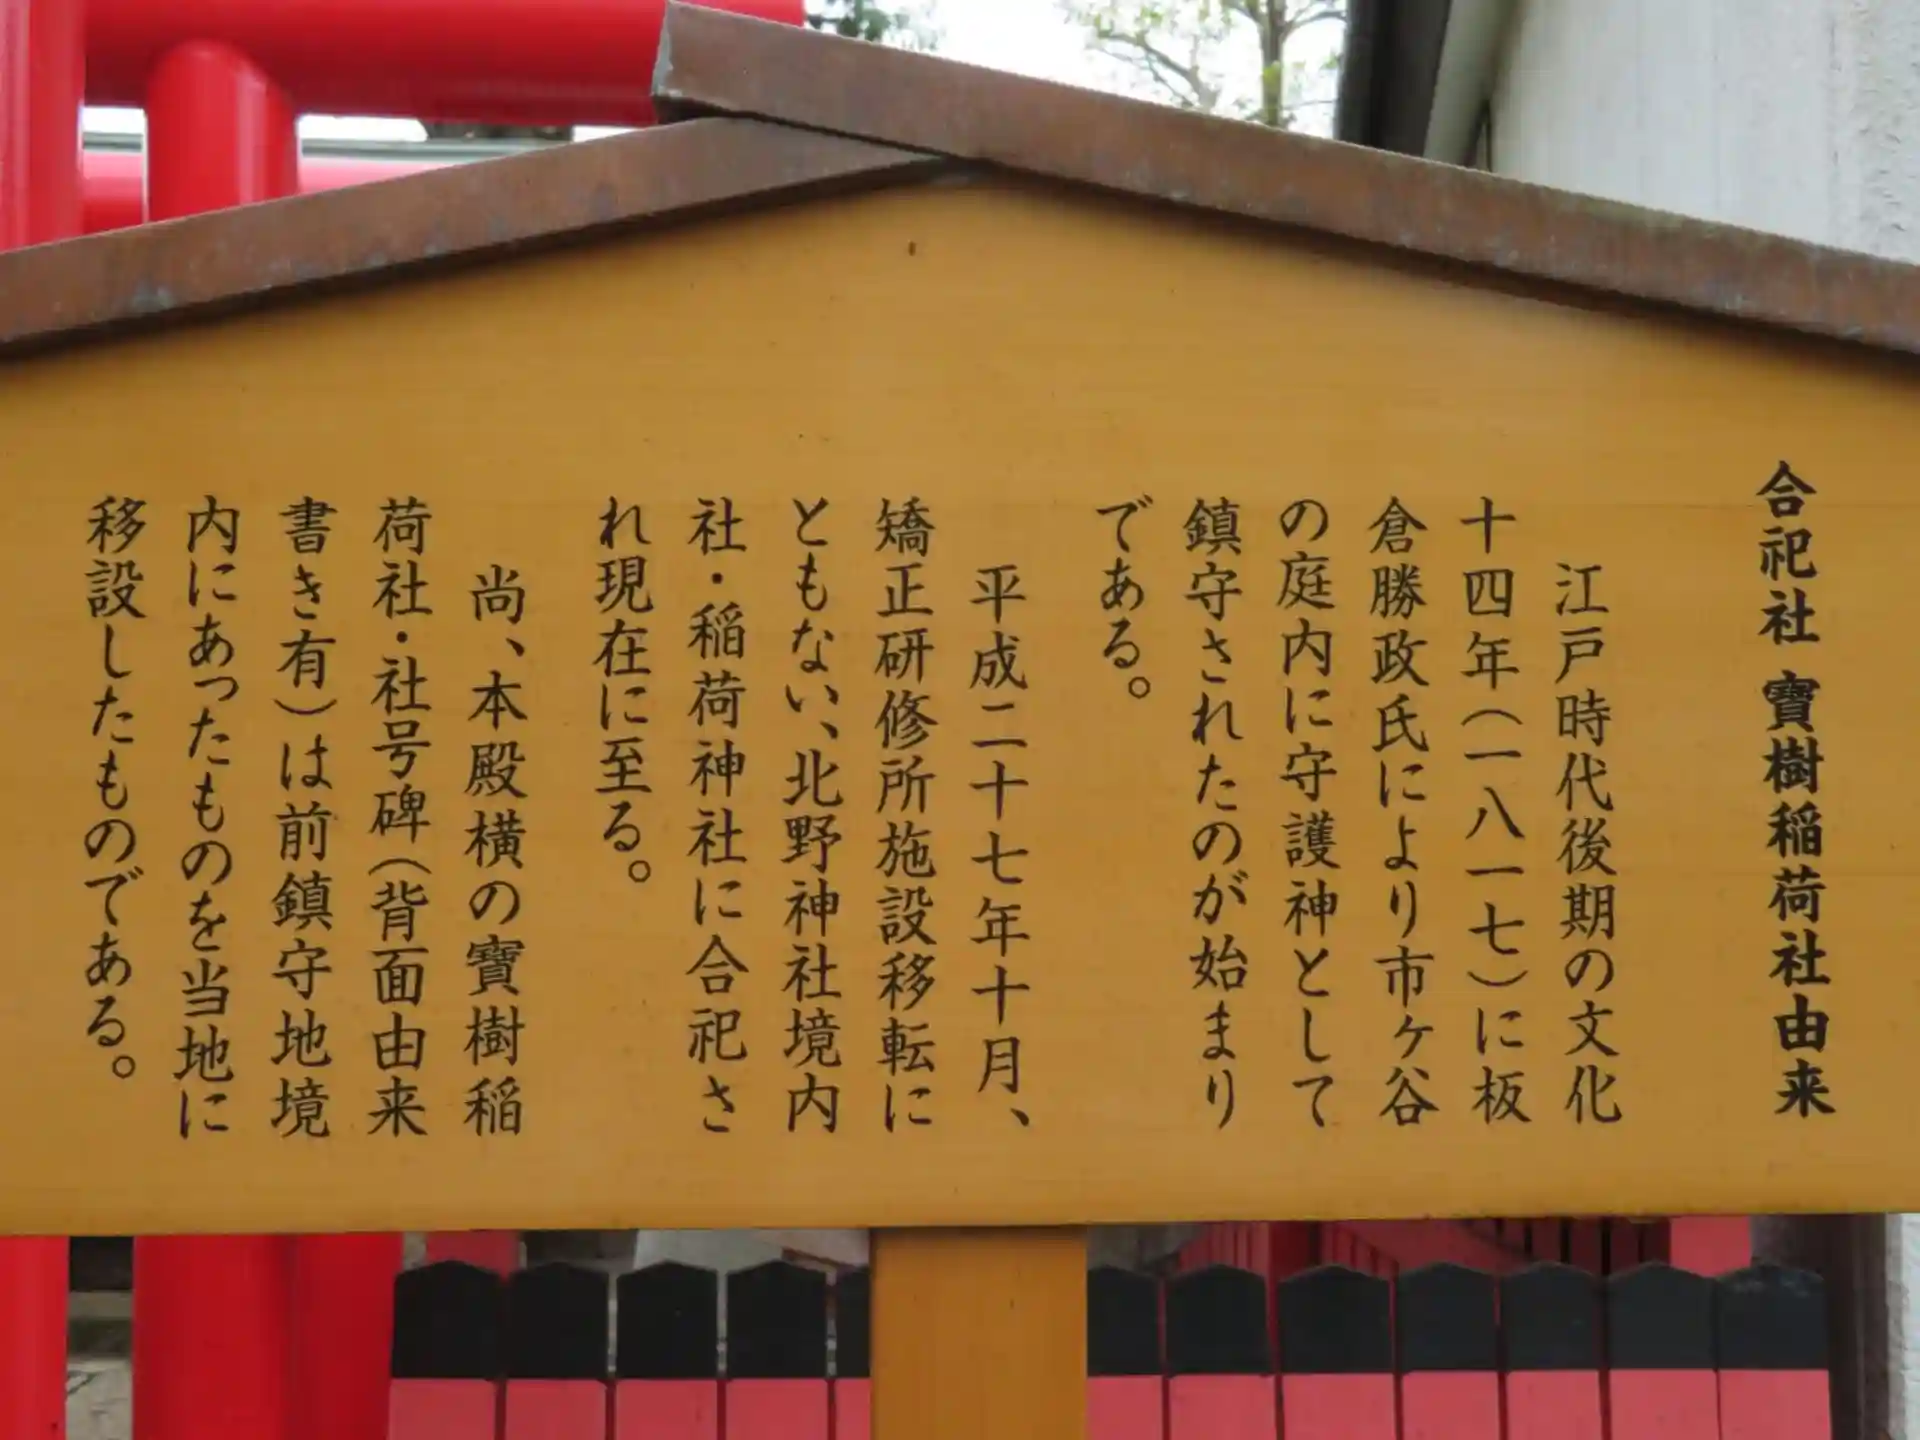 合祀社 寶樹稲荷社由来
江戸時代後期の文化
十四年(一八一七)に板
倉勝政氏により市ヶ谷
の庭内に守護神として
鎮守されたのが始まり
である。
平成二十七年十月、
矯正研修所施設移転に
ともない、北野神社境内
社・稲荷神社に合祀さ
れ現在に至る。
尚、本殿横の寶樹稲
荷社・社号碑(背面由来
書き有)は前鎮守地境
内にあったものを当地に
移設したものである。